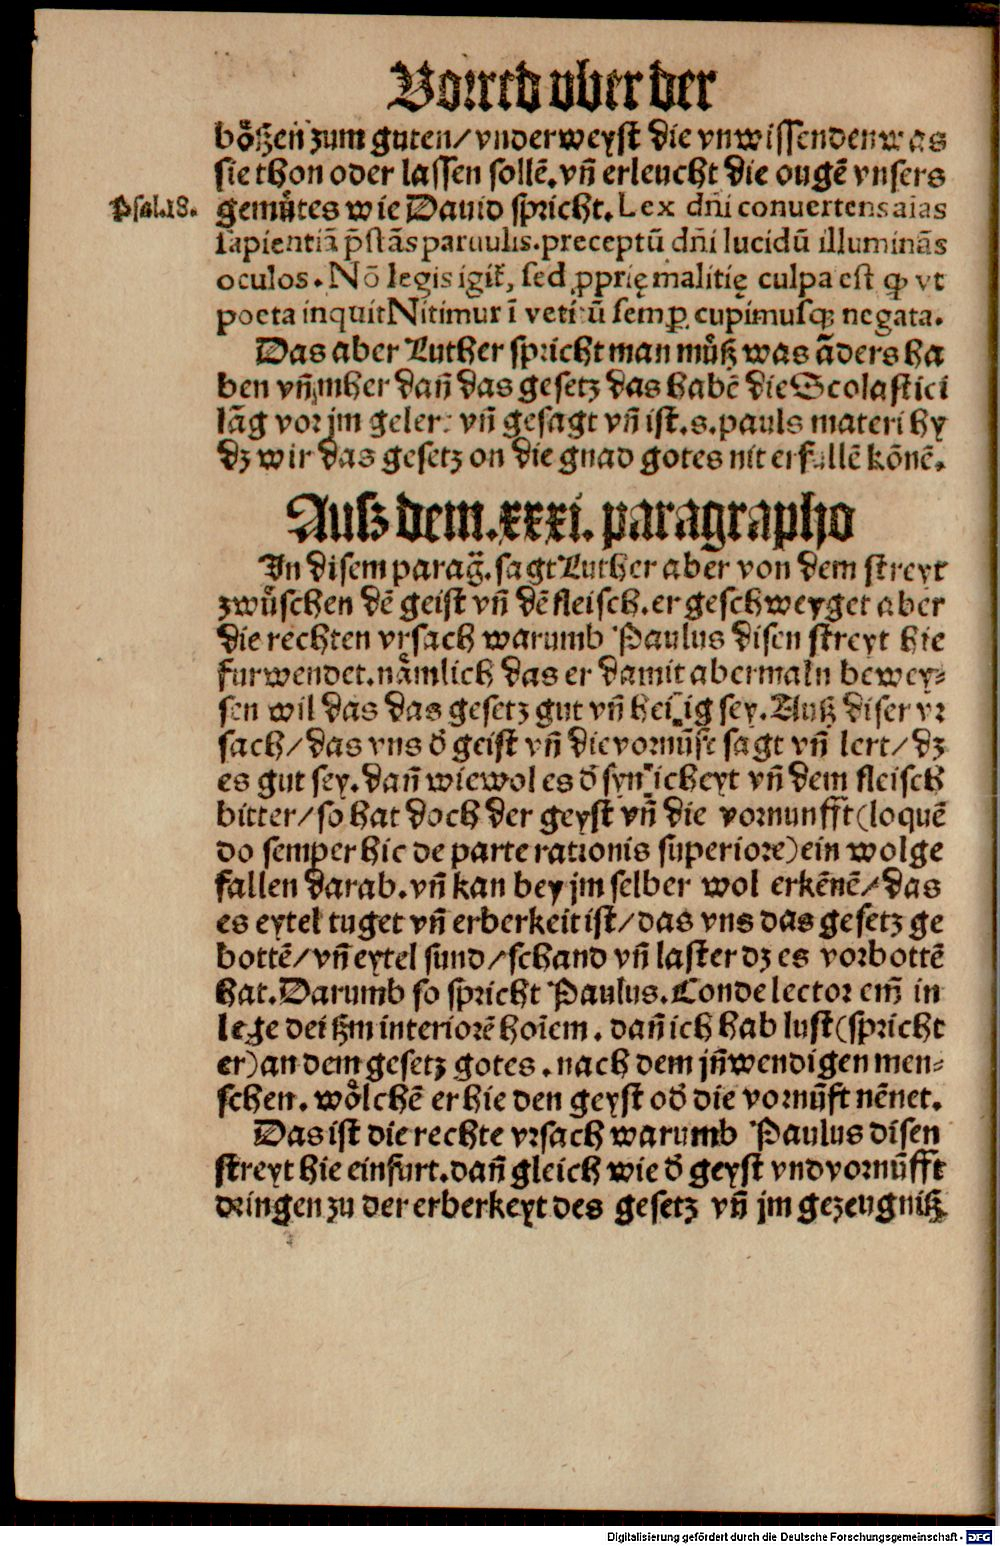 Vorred vber der
bößzen zum guten/ vnderweyst die vnwissenden was
sie thon oder lassen sollē. vn̄ erleucht die ougē vnsers
Psal.18.
gemuͤtes wie Dauid spricht. Lex dn̄i conuertens aīas
sapientiā p̄stās paruulis. preceptū dn̄i lucidū illuminās
oculos. Nō legis igit̃, sed ꝓprię malitię culpa est qꝫ vt
poeta inquit Nitimur ī vetitū semꝑ cupimusqꝫ negata.
Das aber Luther spricht man muͤß was āders ha
ben vn̄ mher dan̄ das gesetz das habē die Scolastici
lāg vor jm geler: vn̄ gesagt vn̄ ist. s. pauls materi hy
dz wir das gesetz on die gnad gotes nit erfullē kōnē.
Ausz dem .xxxi. paragrapho
In disem parag̃. sagt Luther aber von dem streyt
zwuͤschen dē geist vn̄ dē fleisch. er geschweyget aber
die rechten vrsach warumb Paulus disen streyt hie
furwendet. naͤmlich das er damit abermaln bewey-
sen wil das das gesetz gut vn̄ heilig sey. Auß diser vr
sach/ das vns d̄ geist vn̄ die vornūft sagt vn̄ lert/ dz
es gut sey. dan̄ wiewol es d̄ synlicheyt vn̄ dem fleisch
bitter/ so hat doch der geyst vn̄ die vornunfft (loquē
do semper hic de parte rationis superiore) ein wolge
fallen darab. vn̄ kan bey jm selber wol erkēnē/ das
es eytel tuget vn̄ erberkeit ist/ das vns das gesetz ge
bottē/ vn̄ eytel sund/ schand vn̄ laster dz es vorbottē
hat. Darumb so spricht Paulus. Condelector em̄ in
lege dei ßm interiorē hoīem. dan̄ ich hab lust (spricht
er) an dem gesetz gotes. nach dem jn̄wendigen men-
schen. woͤlchē er hie den geyst od̄ die vornūft nēnet.
Das ist die rechte vrsach warumb Paulus disen
streyt hie einfurt. dan̄ gleich wie d̄ geyst vnd vornūfft
dringen zu der erberkeyt des gesetz vn̄ jm gezeugniß
Digitalisierung gefördert durch die Deutsche Forschungsgemeinschaft - DFG